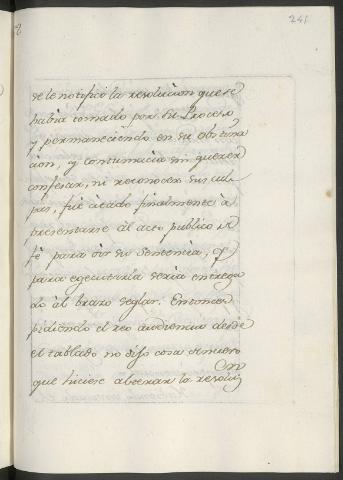 241
se le notificó la resolucion que se
habia tomado por su Proceso
y permaneciendo en su obstina
cion, y contumacia sin querer
confesar, ni reconocer sus cul
pas, fue citado finalmente à
presentarse al acto publico de
fè para oir su sentencia, y
para egecutarla seria entrega
do àl brazo seglar. Entonces
pidiendo el reo audiencia desde
el tablado no dijo cosa de nuevo
que hiciese alterar la resolu